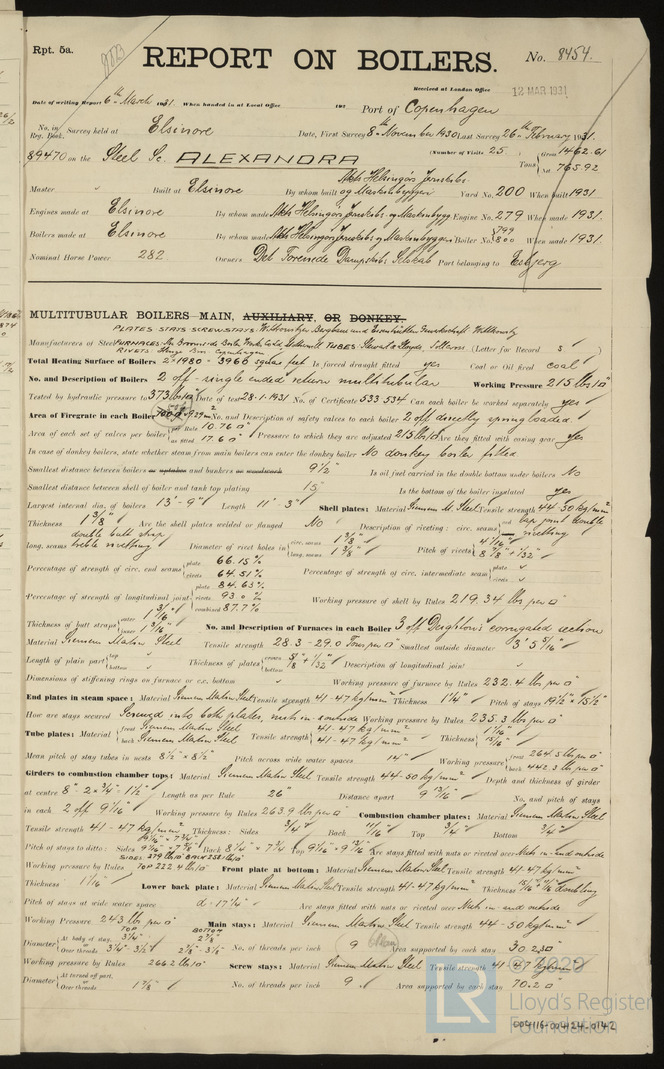 Rpt. 5a.
REPORT ON BOILERS.
No. 8454.
Received at London Office
12 MAR 1931
Date of writing Report 6th March 1931. When handed in at Local Office 192 Port of Copenhagen
No. in Reg. Book. Survey held at Elsinore Date, First Survey 8th November 1930 Last Survey 26th February 1931.
89470 on the Steel Sc. ALEXANDRA (Number of Visits 25) Tons Gross 1462.61 Net 765.92
Master " Built at Elsinore By whom built Akts Helsingørs Jernskibs og Maskinbyggeri Yard No. 200 When built 1931
Engines made at Elsinore By whom made Akts Helsingørs Jernskibs og Maskinbygg. Engine No. 279 When made 1931.
Boilers made at Elsinore By whom made Akts Helsingørs Jernskibs og Maskinbyggeri Boiler No. 799 800 When made 1931.
Nominal Horse Power 282 Owners Det Forenede Dampskibs Selskab Port belonging to Esbjerg
MULTITUBULAR BOILERS—MAIN, AUXILIARY, OR DONKEY.
PLATES STAYS SCREWSTAYS: Witkowitzer Bergbau und Eisenhütten Gewerkschaft Witkowitz
Manufacturers of Steel FURNACES: TUBES: Stewarts & Lloyds (Letter for Record S)
RIVETS: Copenhagen
Total Heating Surface of Boilers 2 × 1980 = 3960 square feet Is forced draught fitted yes Coal or Oil fired coal
No. and Description of Boilers 2 off - single ended return multitubular Working Pressure 215 lbs/□"
Tested by hydraulic pressure to 373 lbs/□" Date of test 28-1-1931 No. of Certificate 533 534 Can each boiler be worked separately yes
Area of Firegrate in each Boiler No. and Description of safety valves to each boiler 2 off directly spring loaded
Area of each set of valves per boiler per Rule 10.76 □" as fitted 17.6 □" Pressure to which they are adjusted 215 lbs/□" Are they fitted with easing gear yes
In case of donkey boilers, state whether steam from main boilers can enter the donkey boiler No donkey boiler fitted
Smallest distance between boilers or uptakes and bunkers or woodwork 9½" Is oil fuel carried in the double bottom under boilers No
Smallest distance between shell of boiler and tank top plating 15" Is the bottom of the boiler insulated yes
Largest internal dia. of boilers 13'-9" Length 11'-3" Shell plates: Material Siemens M. Steel Tensile strength 44-50 kg/mm²
Thickness 1 3/8" Are the shell plates welded or flanged No Description of riveting: circ. seams end lap joint double riveting
long. seams double butt strap treble riveting Diameter of rivet holes in circ. seams 1 3/8" long. seams 1 3/8" Pitch of rivets 4 1/16" 8 7/8" + 1/32"
Percentage of strength of circ. end seams plate 66.15% rivets 64.51% Percentage of strength of circ. intermediate seam plate rivets
Percentage of strength of longitudinal joint plate 84.63% rivets 93.0% combined 87.7% Working pressure of shell by Rules 219.34 lbs per □"
Thickness of butt straps outer 1 3/16" inner 1 3/16" No. and Description of Furnaces in each Boiler 3 off Deighton's corrugated section
Material Siemens Martin Steel Tensile strength 28.3-29.0 Tons per □" Smallest outside diameter 3' 5 5/16"
Length of plain part top bottom Thickness of plates crown bottom 5/8" + 1/32" Description of longitudinal joint
Dimensions of stiffening rings on furnace or c.c. bottom Working pressure of furnace by Rules 232.4 lbs per □"
End plates in steam space: Material Siemens Martin Steel Tensile strength 41-47 kg/mm² Thickness 1¼" Pitch of stays 19½" × 15½"
How are stays secured Screwed into both plates, nuts in & outside Working pressure by Rules 235.3 lbs per □"
Tube plates: Material front Siemens Martin Steel back Siemens Martin Steel Tensile strength 41-47 kg/mm² 41-47 kg/mm² Thickness 1 1/16" 15/16"
Mean pitch of stay tubes in nests 8½" × 8½" Pitch across wide water spaces 14" Working pressure front 264.5 lbs per □" back 442.3 lbs per □"
Girders to combustion chamber tops: Material Siemens Martin Steel Tensile strength 44-50 kg/mm² Depth and thickness of girder
at centre 8" 2 × ¾" - 1½" Length as per Rule 26" Distance apart 9 13/16" No. and pitch of stays
in each 2 off 9 1/16" Working pressure by Rules 263.9 lbs per □" Combustion chamber plates: Material Siemens Martin Steel
Tensile strength 41-47 kg/mm² Thickness: Sides ¾" Back 11/16" Top ¾" Bottom ¾"
Pitch of stays to ditto: Sides 9 1/16" × 7 7/8" Back 8¼" × 7¾" Top 9 1/16" × 9 13/16" Are stays fitted with nuts or riveted over Nuts in and outside
SIDES: 279 lbs/□" BACK 252 lbs/□"
Working pressure by Rules TOP 222.4 lbs/□" Front plate at bottom: Material Siemens Martin Steel Tensile strength 41-47 kg/mm²
Thickness 1 1/16" Lower back plate: Material Siemens Martin Steel Tensile strength 41-47 kg/mm² Thickness doubling
Pitch of stays at wide water space d = 17¼" Are stays fitted with nuts or riveted over Nuts in and outside
Working Pressure 243 lbs per □" Main stays: Material Siemens Martin Steel Tensile strength 44-50 kg/mm²
TOP BOTTOM
Diameter At body of stay, 3¼" 2 7/8" or Over threads 3¼"-3½" 2 7/8"-3½" No. of threads per inch 9 Area supported by each stay 302.3 □"
Working pressure by Rules 266.2 lbs/□" Screw stays: Material Siemens Martin Steel Tensile strength 41-47 kg/mm²
Diameter At turned off part, or Over threads 1 7/8" No. of threads per inch 9 Area supported by each stay 70.2 □"
© 2020
LR
Lloyd's Register
Foundation
004116-004124-0142